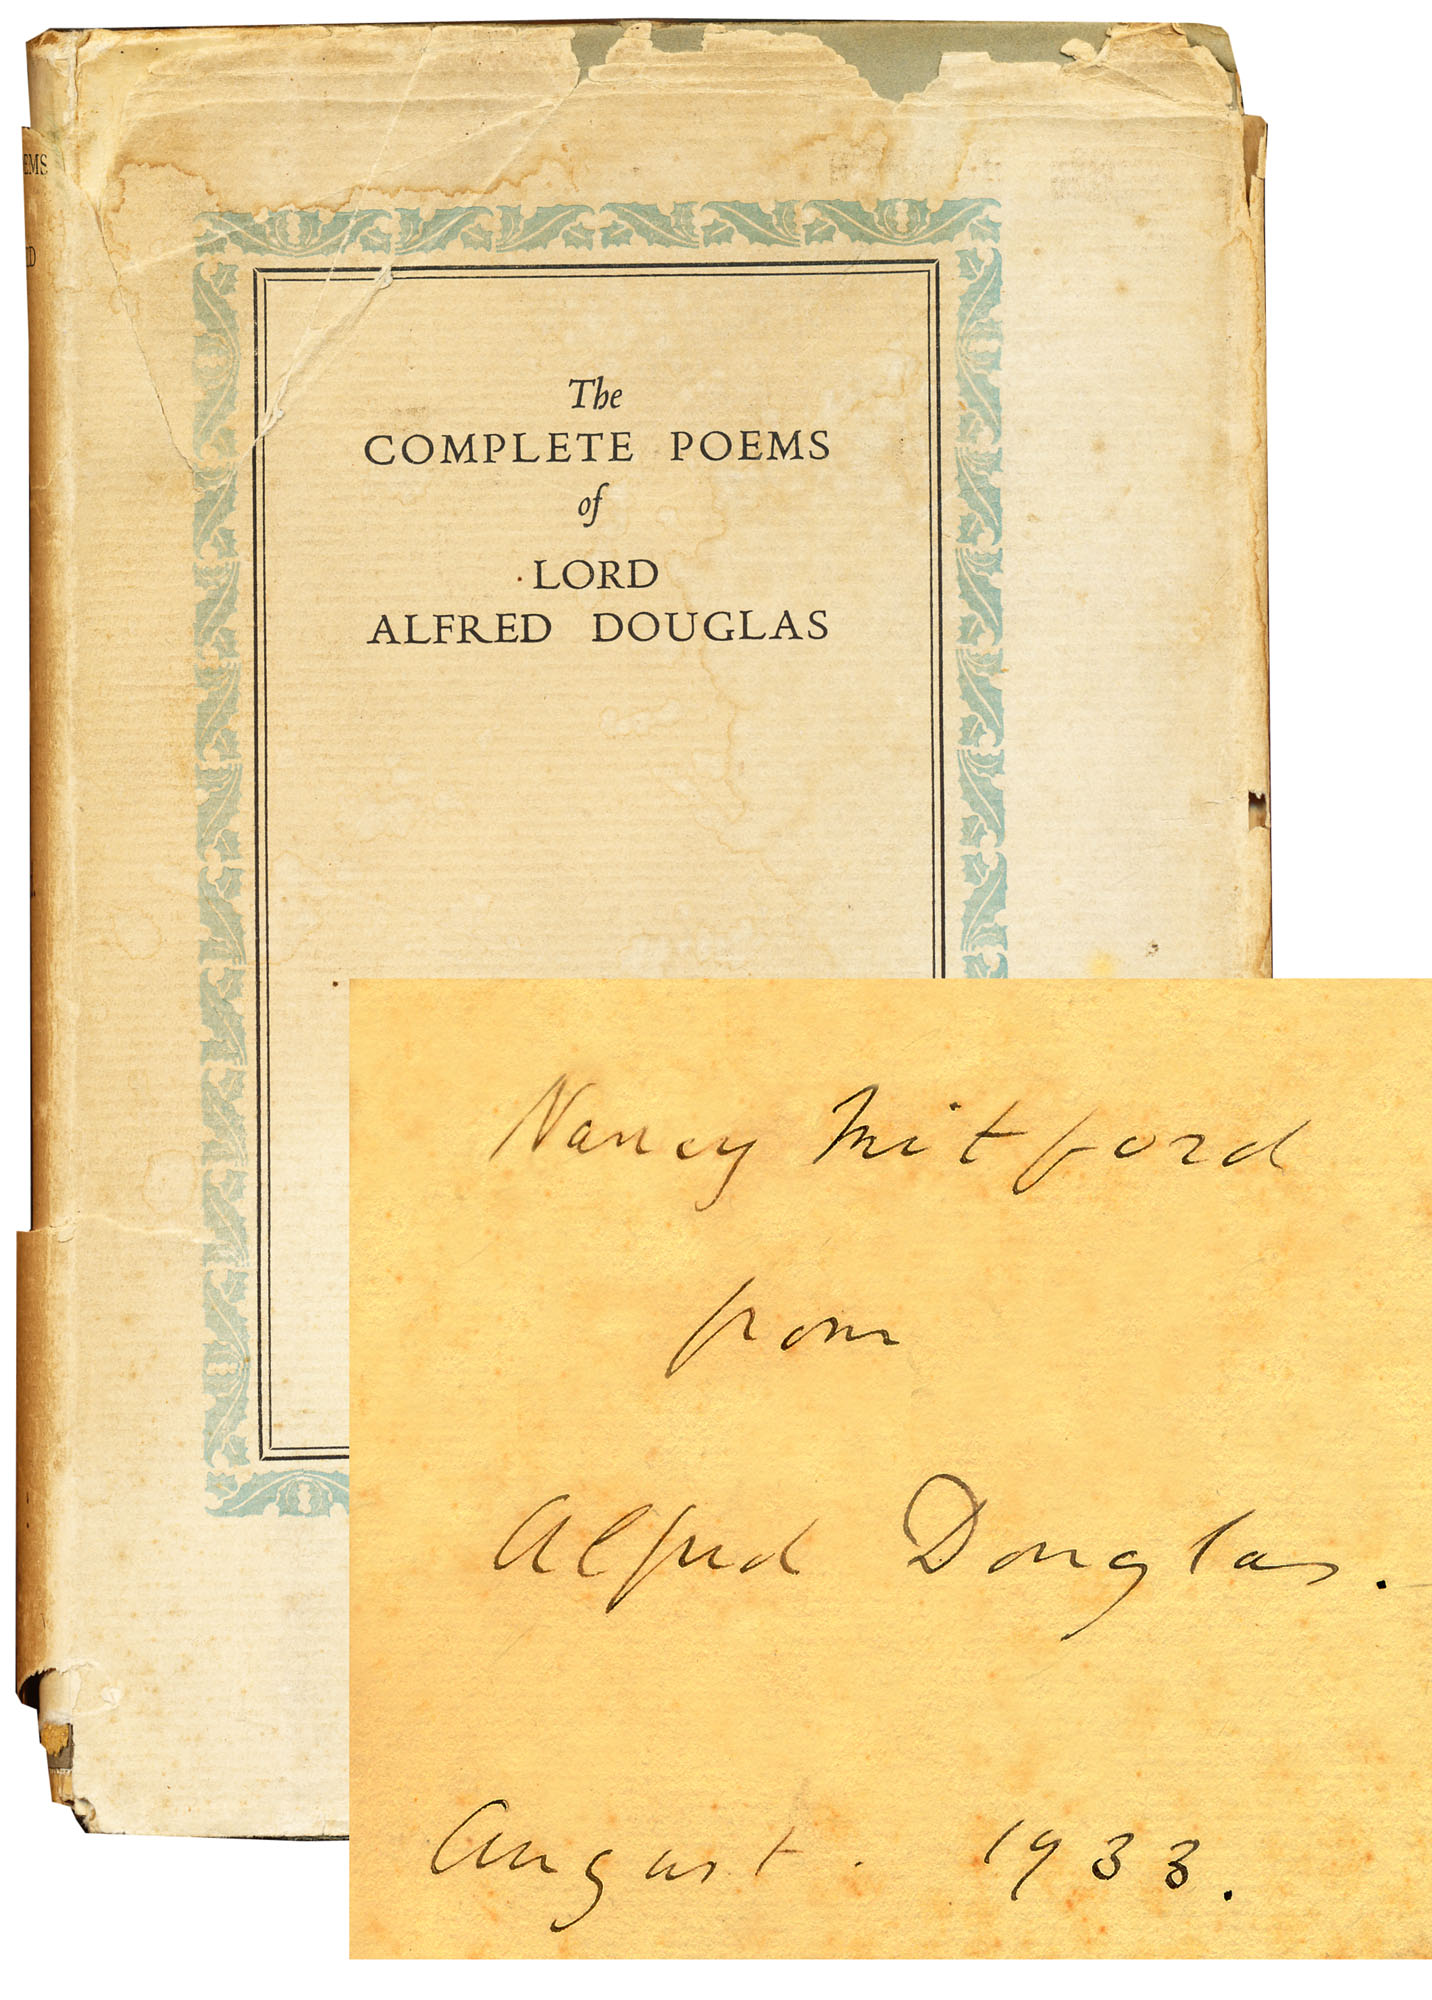 EMS
The
COMPLETE POEMS
of
LORD
ALFRED DOUGLAS
Nancy Mitford
from
Alfred Douglas.
August. 1933.